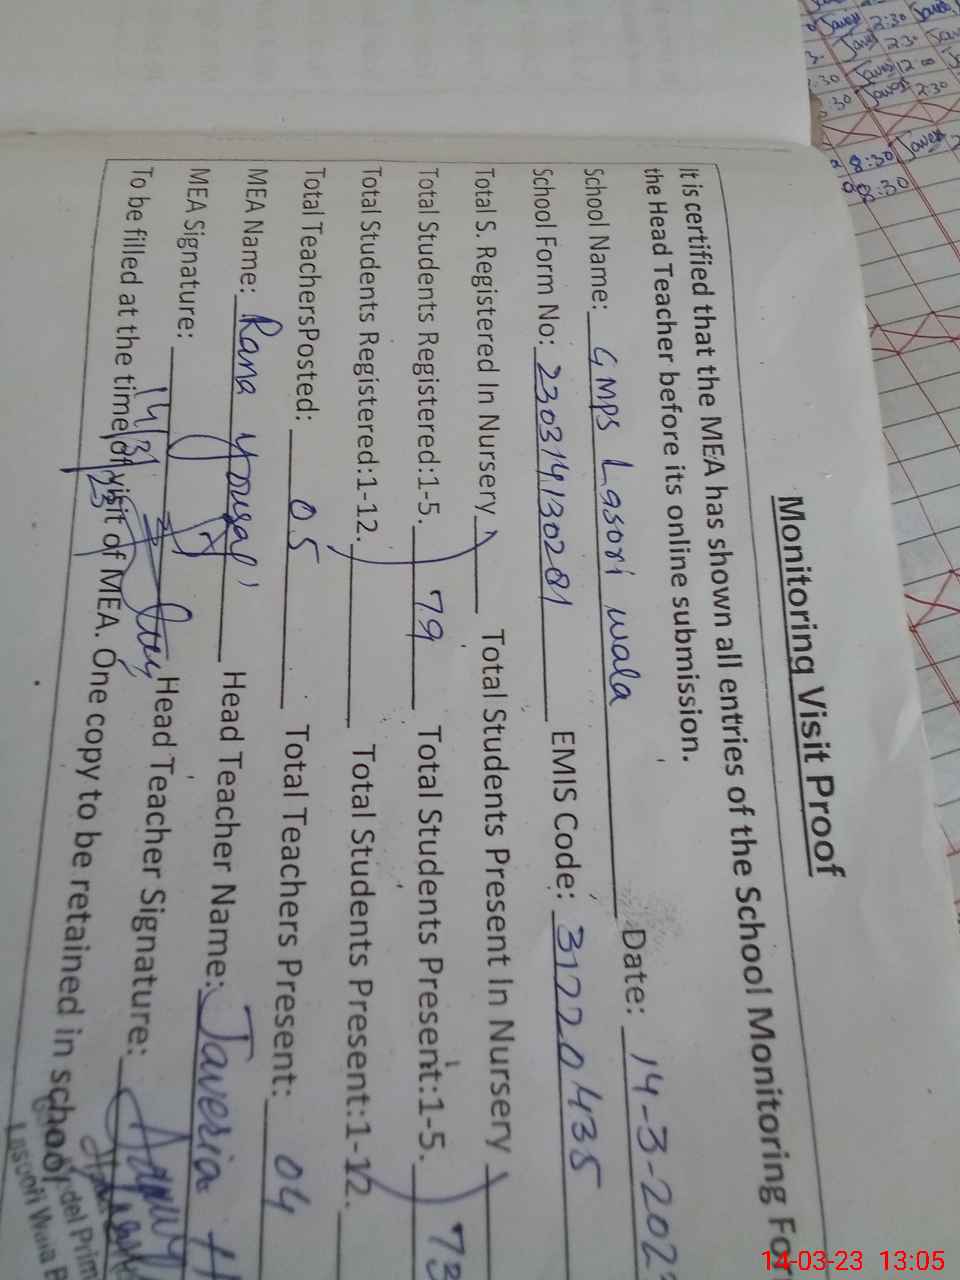 Monitoring Visit Proof
It is certified that the MEA has shown all entries of the School Monitoring For
the Head Teacher before its online submission.
School Name: GMPS Lasori wala Date: 14-3-202
School Form No: 230314130281 EMIS Code: 31220435
Total S. Registered In Nursery Total Students Present In Nursery
Total Students Registered:1-5. 79 Total Students Present:1-5. 73
Total Students Registered:1-12. Total Students Present:1-12.
Total TeachersPosted: 05 Total Teachers Present: 04
MEA Name: Rana yousaf Head Teacher Name: Javeria
MEA Signature: Head Teacher Signature:
14/3/23
To be filled at the time of visit of MEA. One copy to be retained in school
del Prim
Lasori Wala
2:30
2:30
12:00
:30
:30 2:30
08:30
08:30
14-03-23 13:05